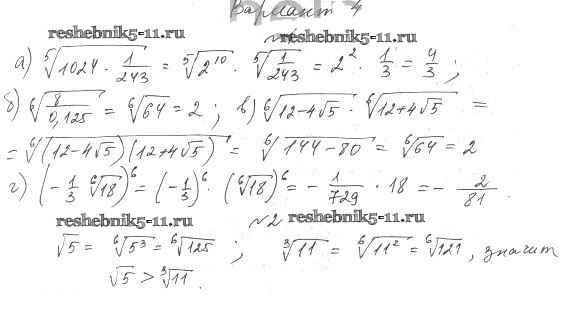 Вариант 4
reshebnik5-11.ru reshebnik5-11.ru
№1
а) ⁵√(1024 · 1/243) = ⁵√(2¹⁰) · ⁵√(1/243) = 2² · 1/3 = 4/3 ;
б) ⁶√(8/0,125) = ⁶√64 = 2 ; в) ⁶√(12-4√5) · ⁶√(12+4√5) =
= ⁶√((12-4√5)(12+4√5)) = ⁶√(144-80) = ⁶√64 = 2
г) (-1/3 ⁶√18)⁶ = (-1/3)⁶ · (⁶√18)⁶ = - 1/729 · 18 = - 2/81 .
reshebnik5-11.ru №2 reshebnik5-11.ru
√5 = ⁶√(5³) = ⁶√125 ; ³√11 = ⁶√(11²) = ⁶√121 , значит
√5 > ³√11 .